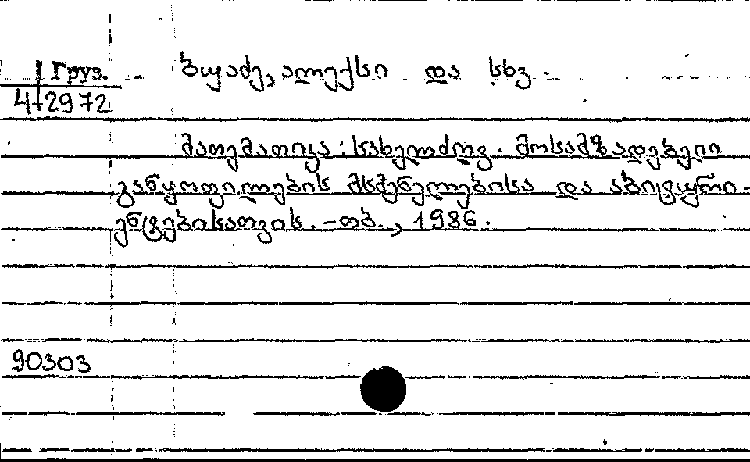 Груз.
4-12972
ბუაძე, ალექსი და სხვ.
მათემატიკა : სახელმძღვ. მოსამზადებელი
განყოფილების მსმენელებისა და აბიტური-
ენტებისათვის. - თბ., 1986.
90303